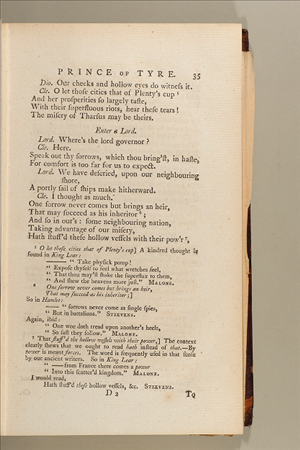 PRINCE OF TYRE. 35
Dio. Our cheeks and hollow eyes do witneſs it.
Cle. O let thoſe cities that of Plenty's cup ¹
And her proſperities ſo largely taſte,
With their ſuperfluous riots, hear theſe tears!
The miſery of Tharſus may be theirs.
Enter a Lord.
Lord. Where's the lord governor?
Cle. Here.
Speak out thy ſorrows, which thou bring'ſt, in haſte,
For comfort is too far for us to expect.
Lord. We have deſcried, upon our neighbouring
ſhore,
A portly ſail of ſhips make hitherward.
Cle. I thought as much.
One ſorrow never comes but brings an heir,
That may ſucceed as his inheritor ²;
And ſo in our's: ſome neighbouring nation,
Taking advantage of our miſery,
Hath ſtuff'd theſe hollow veſſels with their pow'r ³,
¹ O let thoſe cities that of Plenty's cup] A kindred thought is
found in King Lear:
"Take phyſick pomp!
"Expoſe thyſelf to feel what wretches feel,
"That thou may'ſt ſhake the ſuperflux to them,
"And ſhew the heavens more juſt." MALONE.
² One ſorrow never comes but brings an heir,
That may ſucceed as his inheritor;]
So in Hamlet:
"ſorrows never come as ſingle ſpies,
"But in battalions." STEEVENS.
Again, ibid:
"One woe doth tread upon another's heels,
"So faſt they follow." MALONE.
³ That ſtuff'd the hollow veſſels with their power,] The context
clearly ſhews that we ought to read hath inſtead of that.—By
power is meant forces. The word is frequently uſed in that ſenſe
by our ancient writers. So in King Lear:
"—from France there comes a power
"Into this ſcatter'd kingdom." MALONE.
I would read,
Hath ſtuff'd theſe hollow veſſels, &c. STEEVENS.
D 2 To